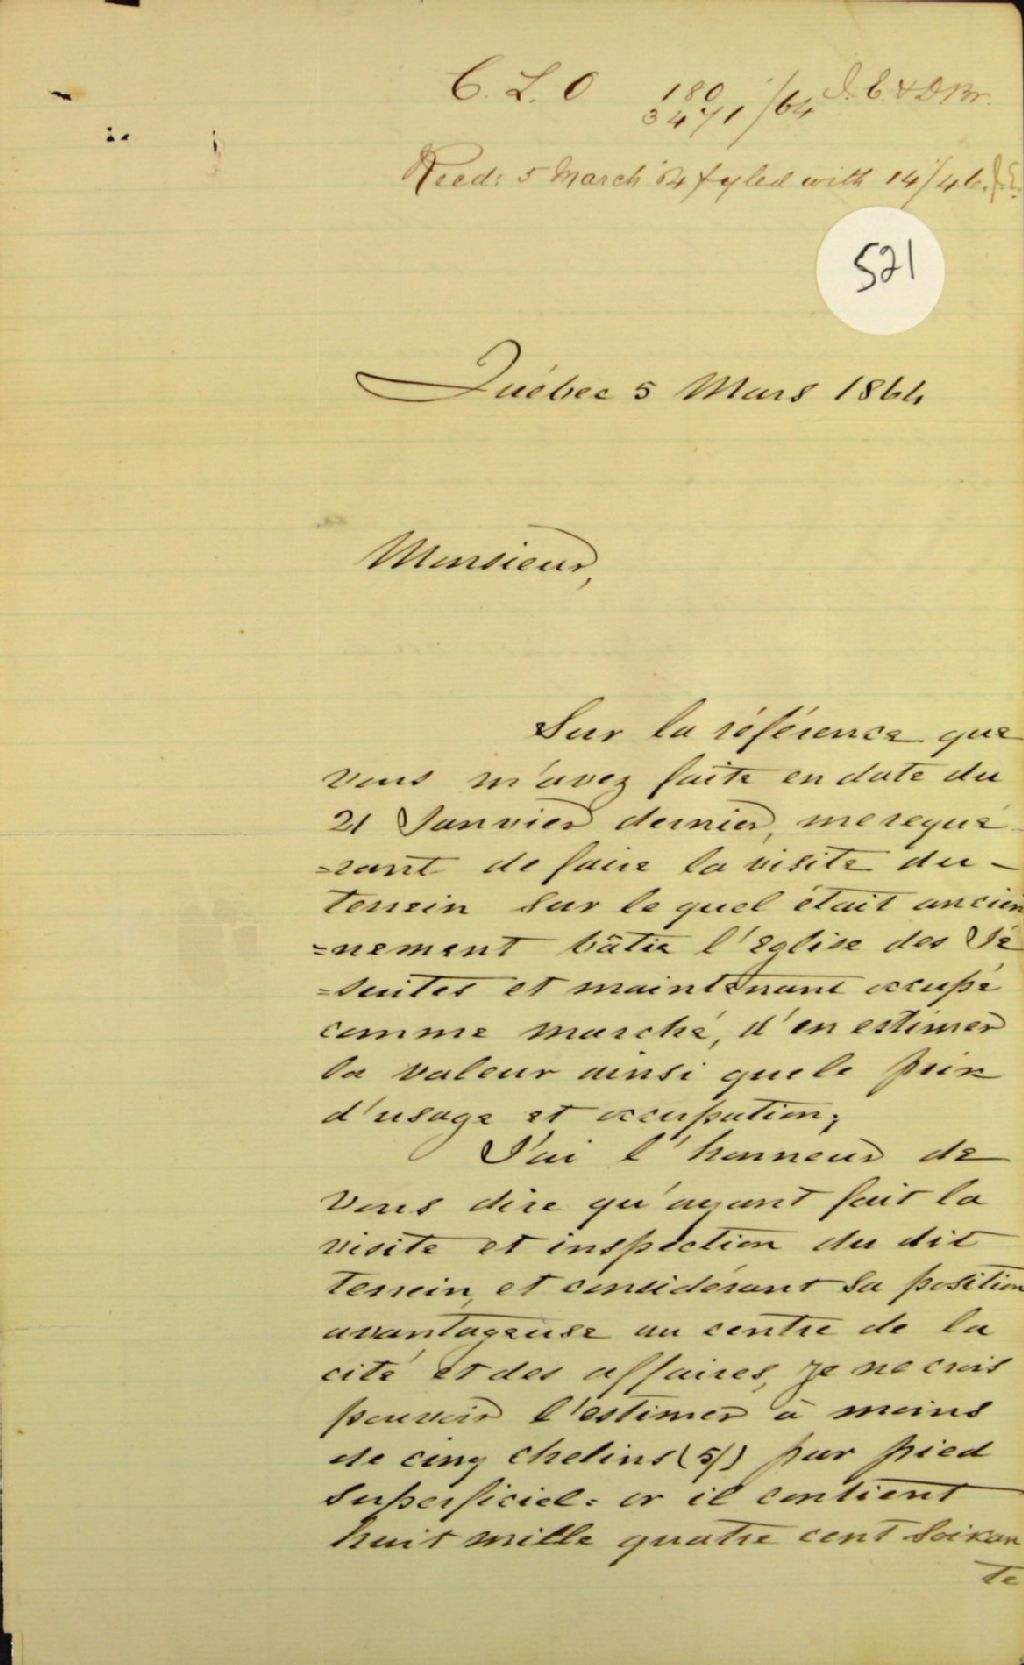 C. L. O 180
3471/64 J. E. & D Br.
Recd: 5 March 64 fyled with 14/46. J.E.
521
Québec 5 Mars 1864
Monsieur,
Sur la référence que
vous m'avez faite en date du
21 Janvier dernier, me requé-
=rant de faire la visite du -
terrein sur le quel était ancien
=nement bâtie l'Eglise des Jé
=suites et maintenant occupé
comme marché, d'en estimer
la valeur ainsi que le prix
d'usage et occupation;
J'ai l'honneur de
vous dire qu'ayant fait la
visite et inspection du dit
terrein, et considérant sa position
avantageuse au centre de la
cité et des affaires, je ne crois
pouvoir l'estimer à moins
de cinq chelins (5/) par pied
superficiel: or il contient
huit mille quatre cent soixan
te